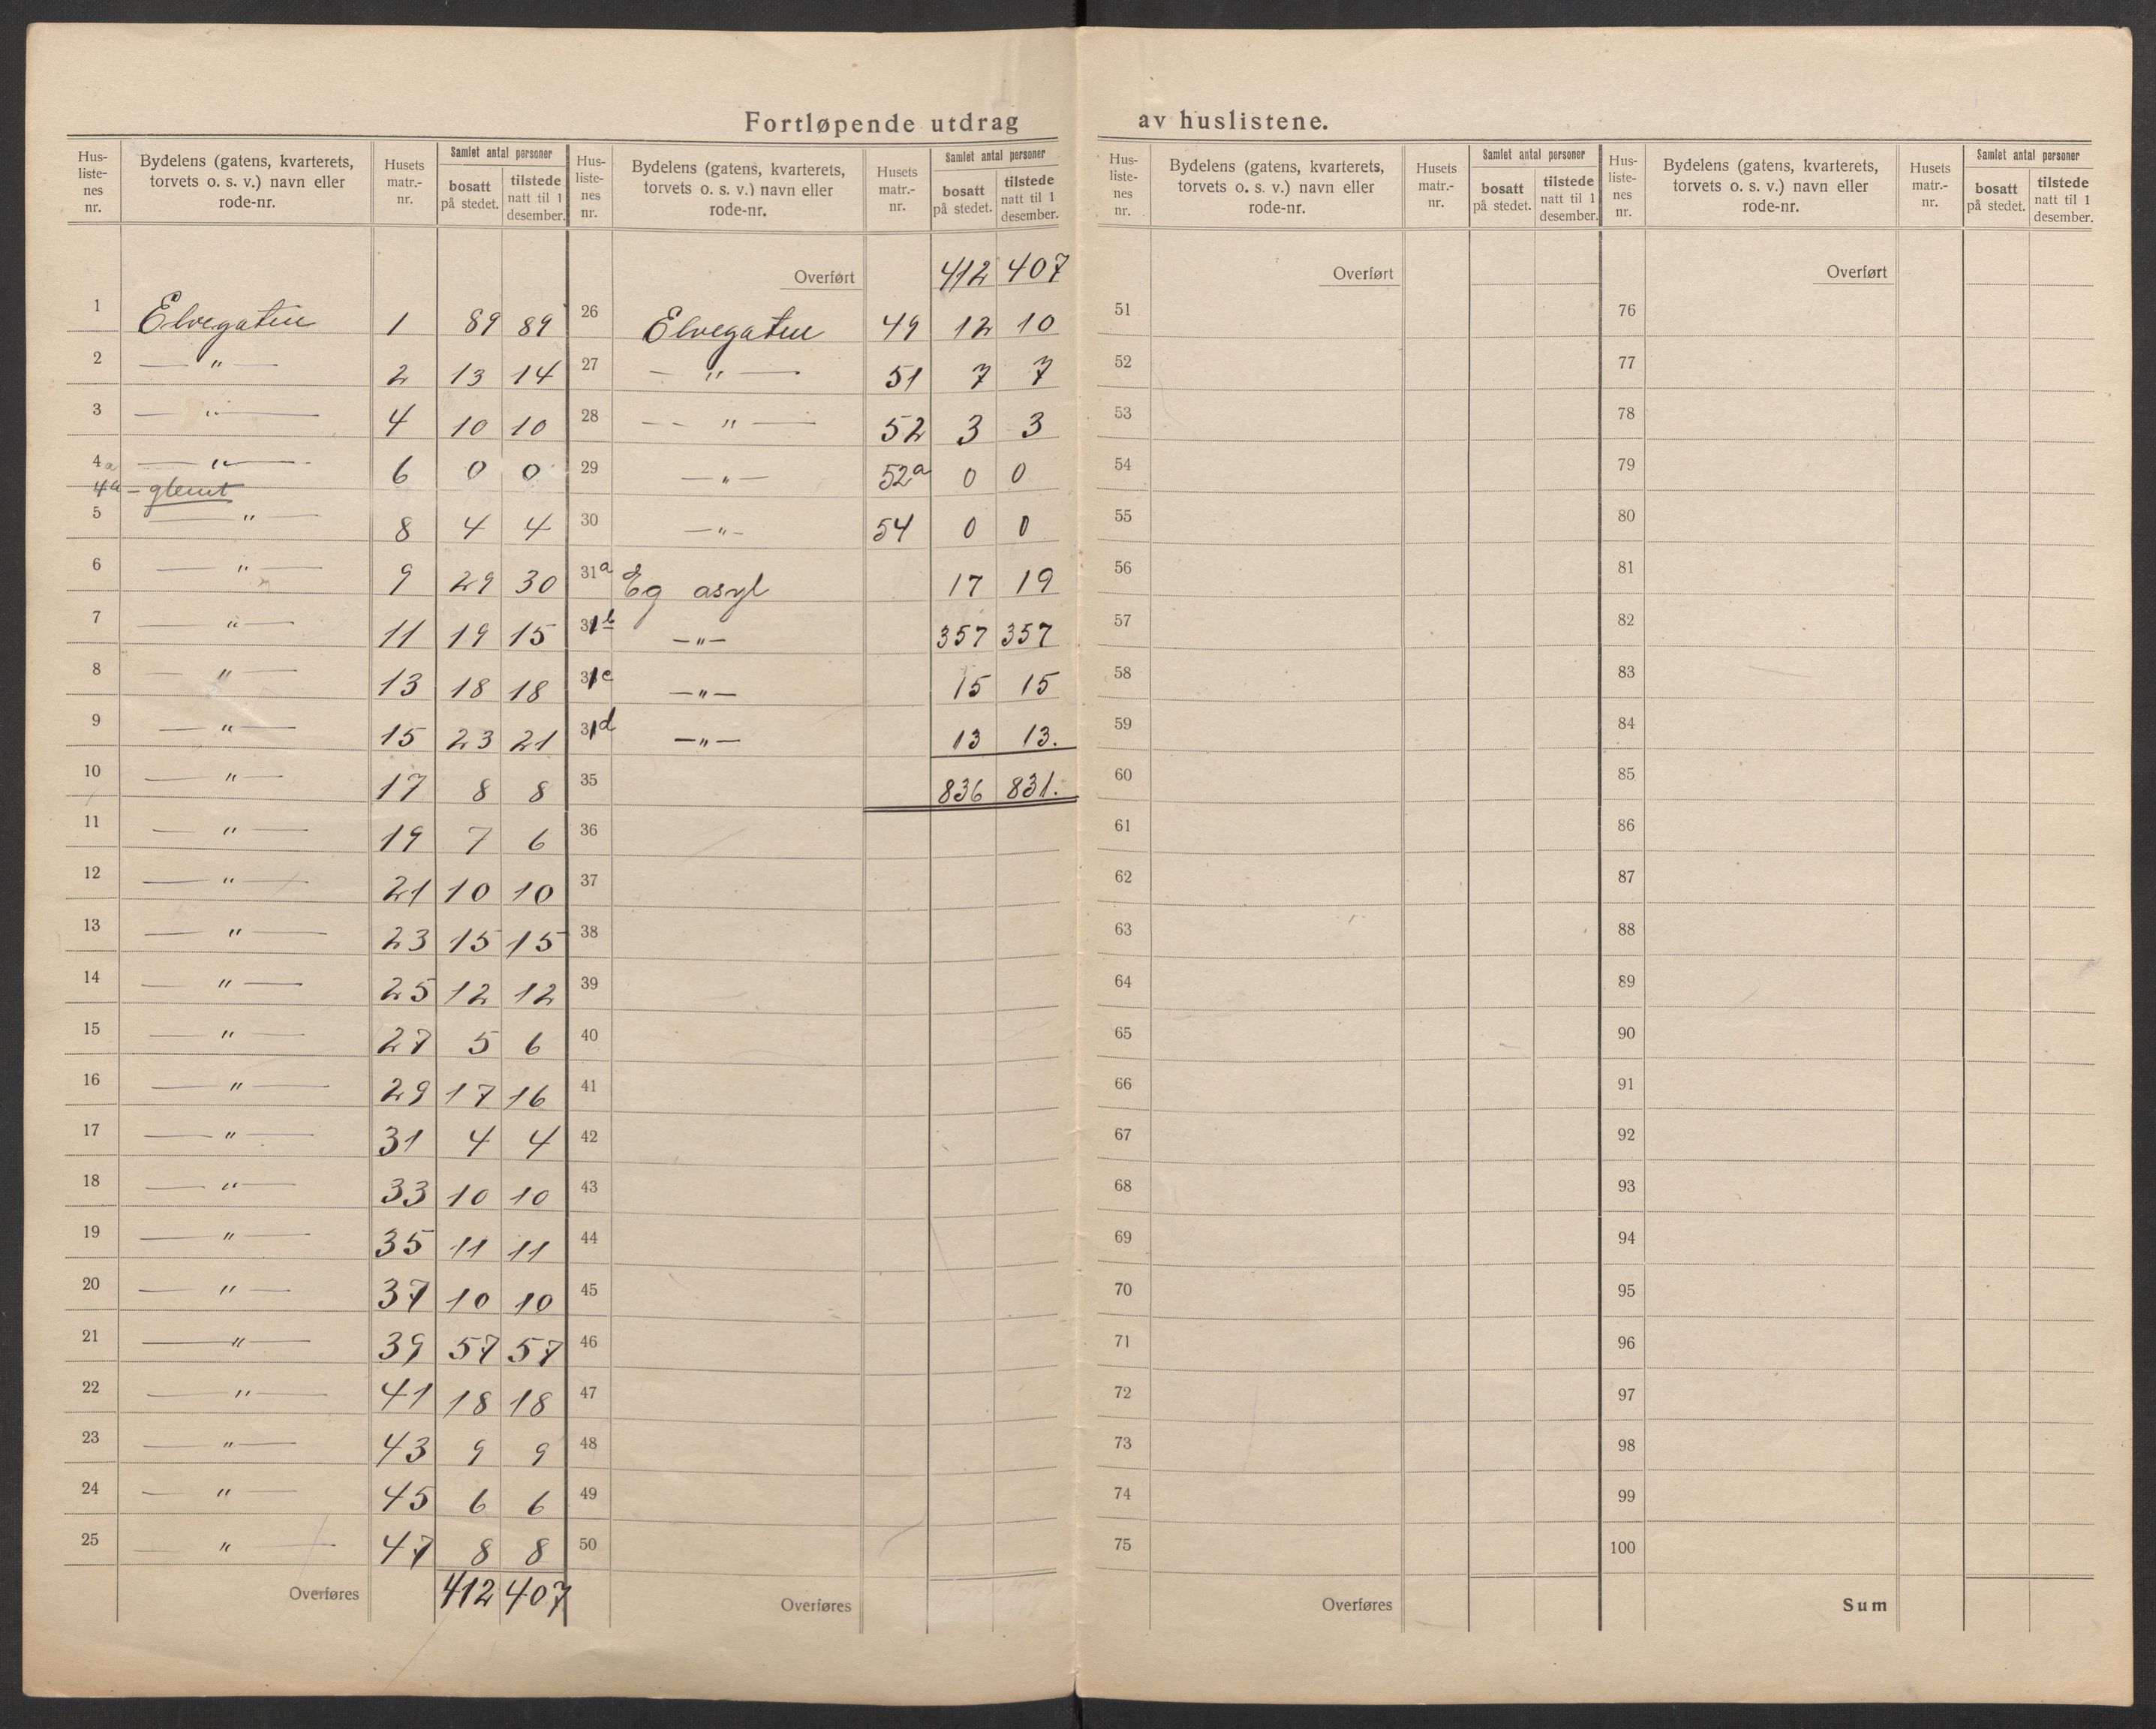 Fortløpende utdrag av huslistene.
Hus-listenes nr. | Bydelens (gatens, kvarterets, torvets o. s. v.) navn eller rode-nr. | Husets matr.-nr. | Samlet antal personer bosatt på stedet. | tilstede natt til 1 desember.
1 Elvegaten 1 89 89
2 — " — 2 13 14
3 — " — 4 10 10
4a — " — 6 0 0
4a – glemt
5 — " — 8 4 4
6 — " — 9 29 30
7 — " — 11 19 15
8 — " — 13 18 18
9 — " — 15 23 21
10 — " — 17 8 8
11 — " — 19 7 6
12 — " — 21 10 10
13 — " — 23 15 15
14 — " — 25 12 12
15 — " — 27 5 6
16 — " — 29 17 16
17 — " — 31 4 4
18 — " — 33 10 10
19 — " — 35 11 11
20 — " — 37 10 10
21 — " — 39 57 57
22 — " — 41 18 18
23 — " — 43 9 9
24 — " — 45 6 6
25 — " — 47 8 8
Overføres 412 407
Hus-listenes nr. | Bydelens (gatens, kvarterets, torvets o. s. v.) navn eller rode-nr. | Husets matr.-nr. | Samlet antal personer bosatt på stedet. | tilstede natt til 1 desember.
Overført 412 407
26 Elvegaten 49 12 10
27 — " — 51 7 7
28 — " — 52 3 3
29 — " — 52a 0 0
30 — " — 54 0 0
31a Eg asyl 17 19
31b — " — 357 357
31c — " — 15 15
31d — " — 13 13.
35 836 831.
36
37
38
39
40
41
42
43
44
45
46
47
48
49
50
Overføres
Hus-listenes nr. | Bydelens (gatens, kvarterets, torvets o. s. v.) navn eller rode-nr. | Husets matr.-nr. | Samlet antal personer bosatt på stedet. | tilstede natt til 1 desember.
Overført
51
52
53
54
55
56
57
58
59
60
61
62
63
64
65
66
67
68
69
70
71
72
73
74
75
Overføres
Hus-listenes nr. | Bydelens (gatens, kvarterets, torvets o. s. v.) navn eller rode-nr. | Husets matr.-nr. | Samlet antal personer bosatt på stedet. | tilstede natt til 1 desember.
Overført
76
77
78
79
80
81
82
83
84
85
86
87
88
89
90
91
92
93
94
95
96
97
98
99
100
Sum